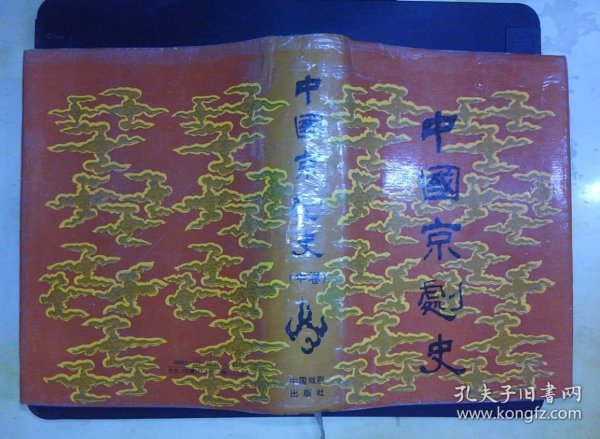 中國京劇史
中國京劇史
(中卷)
中国戏剧
出版社
孔夫子旧书网
www.kongfz.com